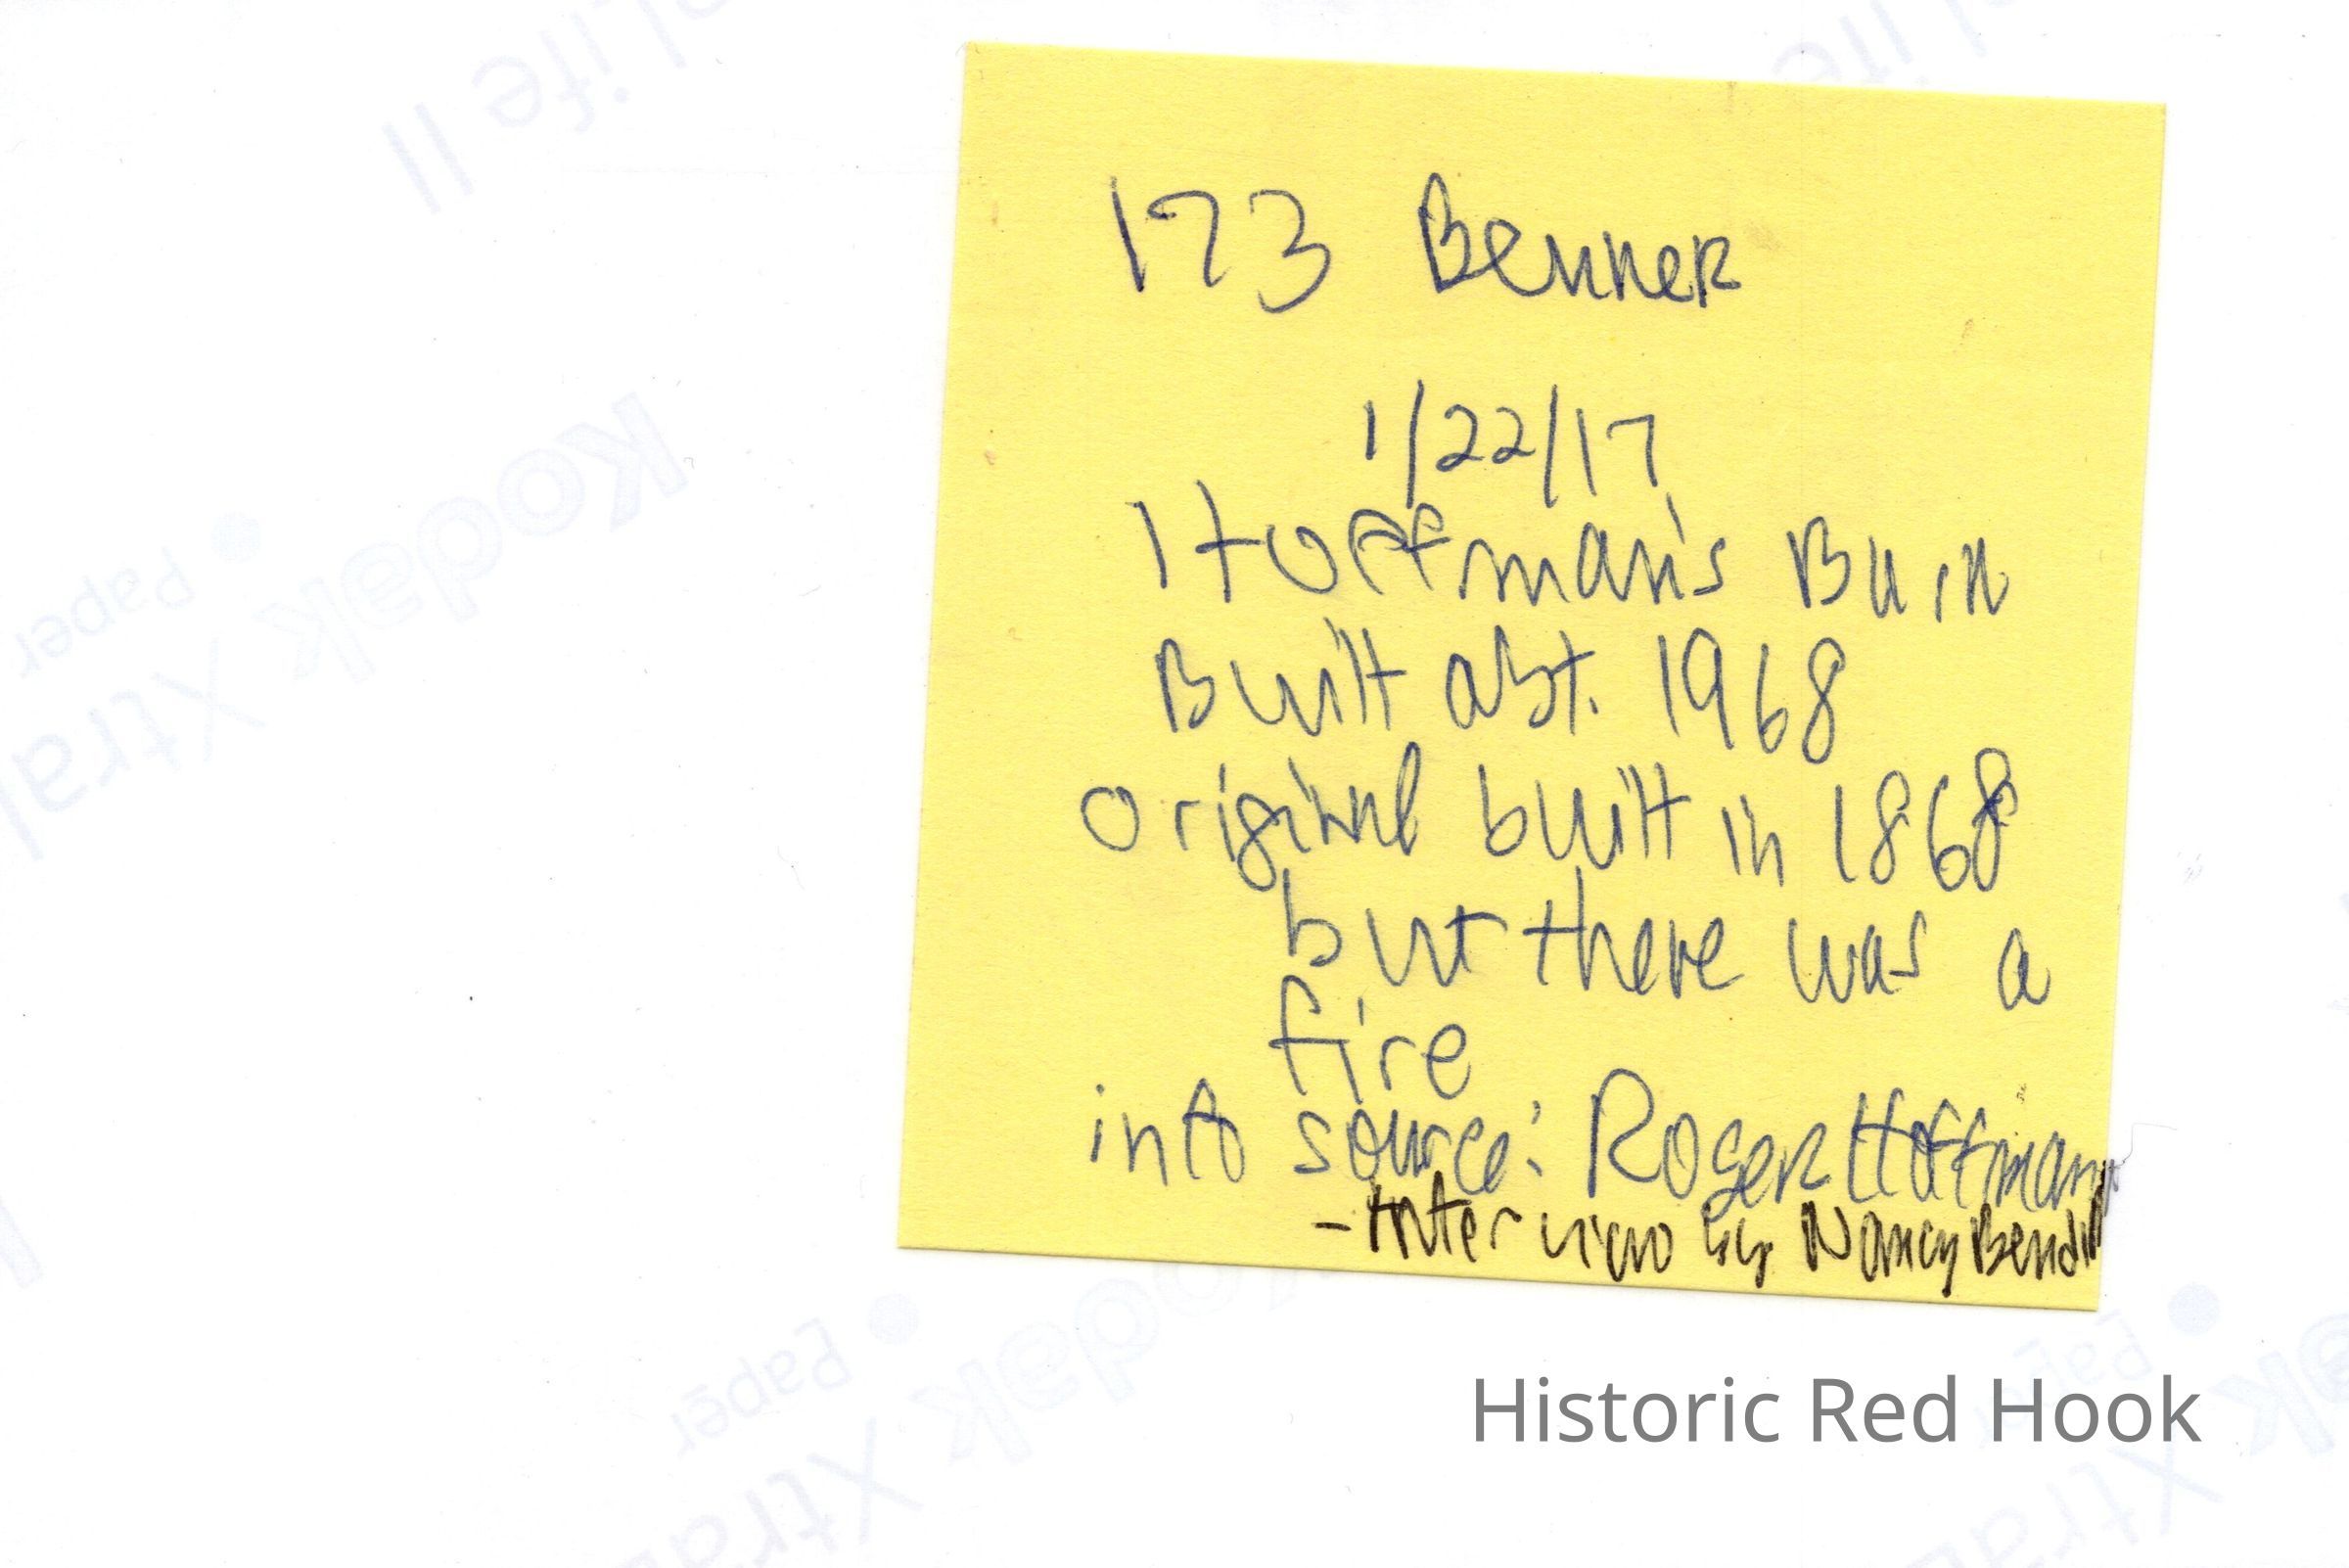 173 Benner
1/22/17
Hoffman's Barn
Built abt. 1968
original built in 1868
but there was a
fire
info source: Roger Hoffman
- Interview by Nancy Bendin
Historic Red Hook
Kodak Xtral
Paper
Life II
Kodak Xtra
Paper